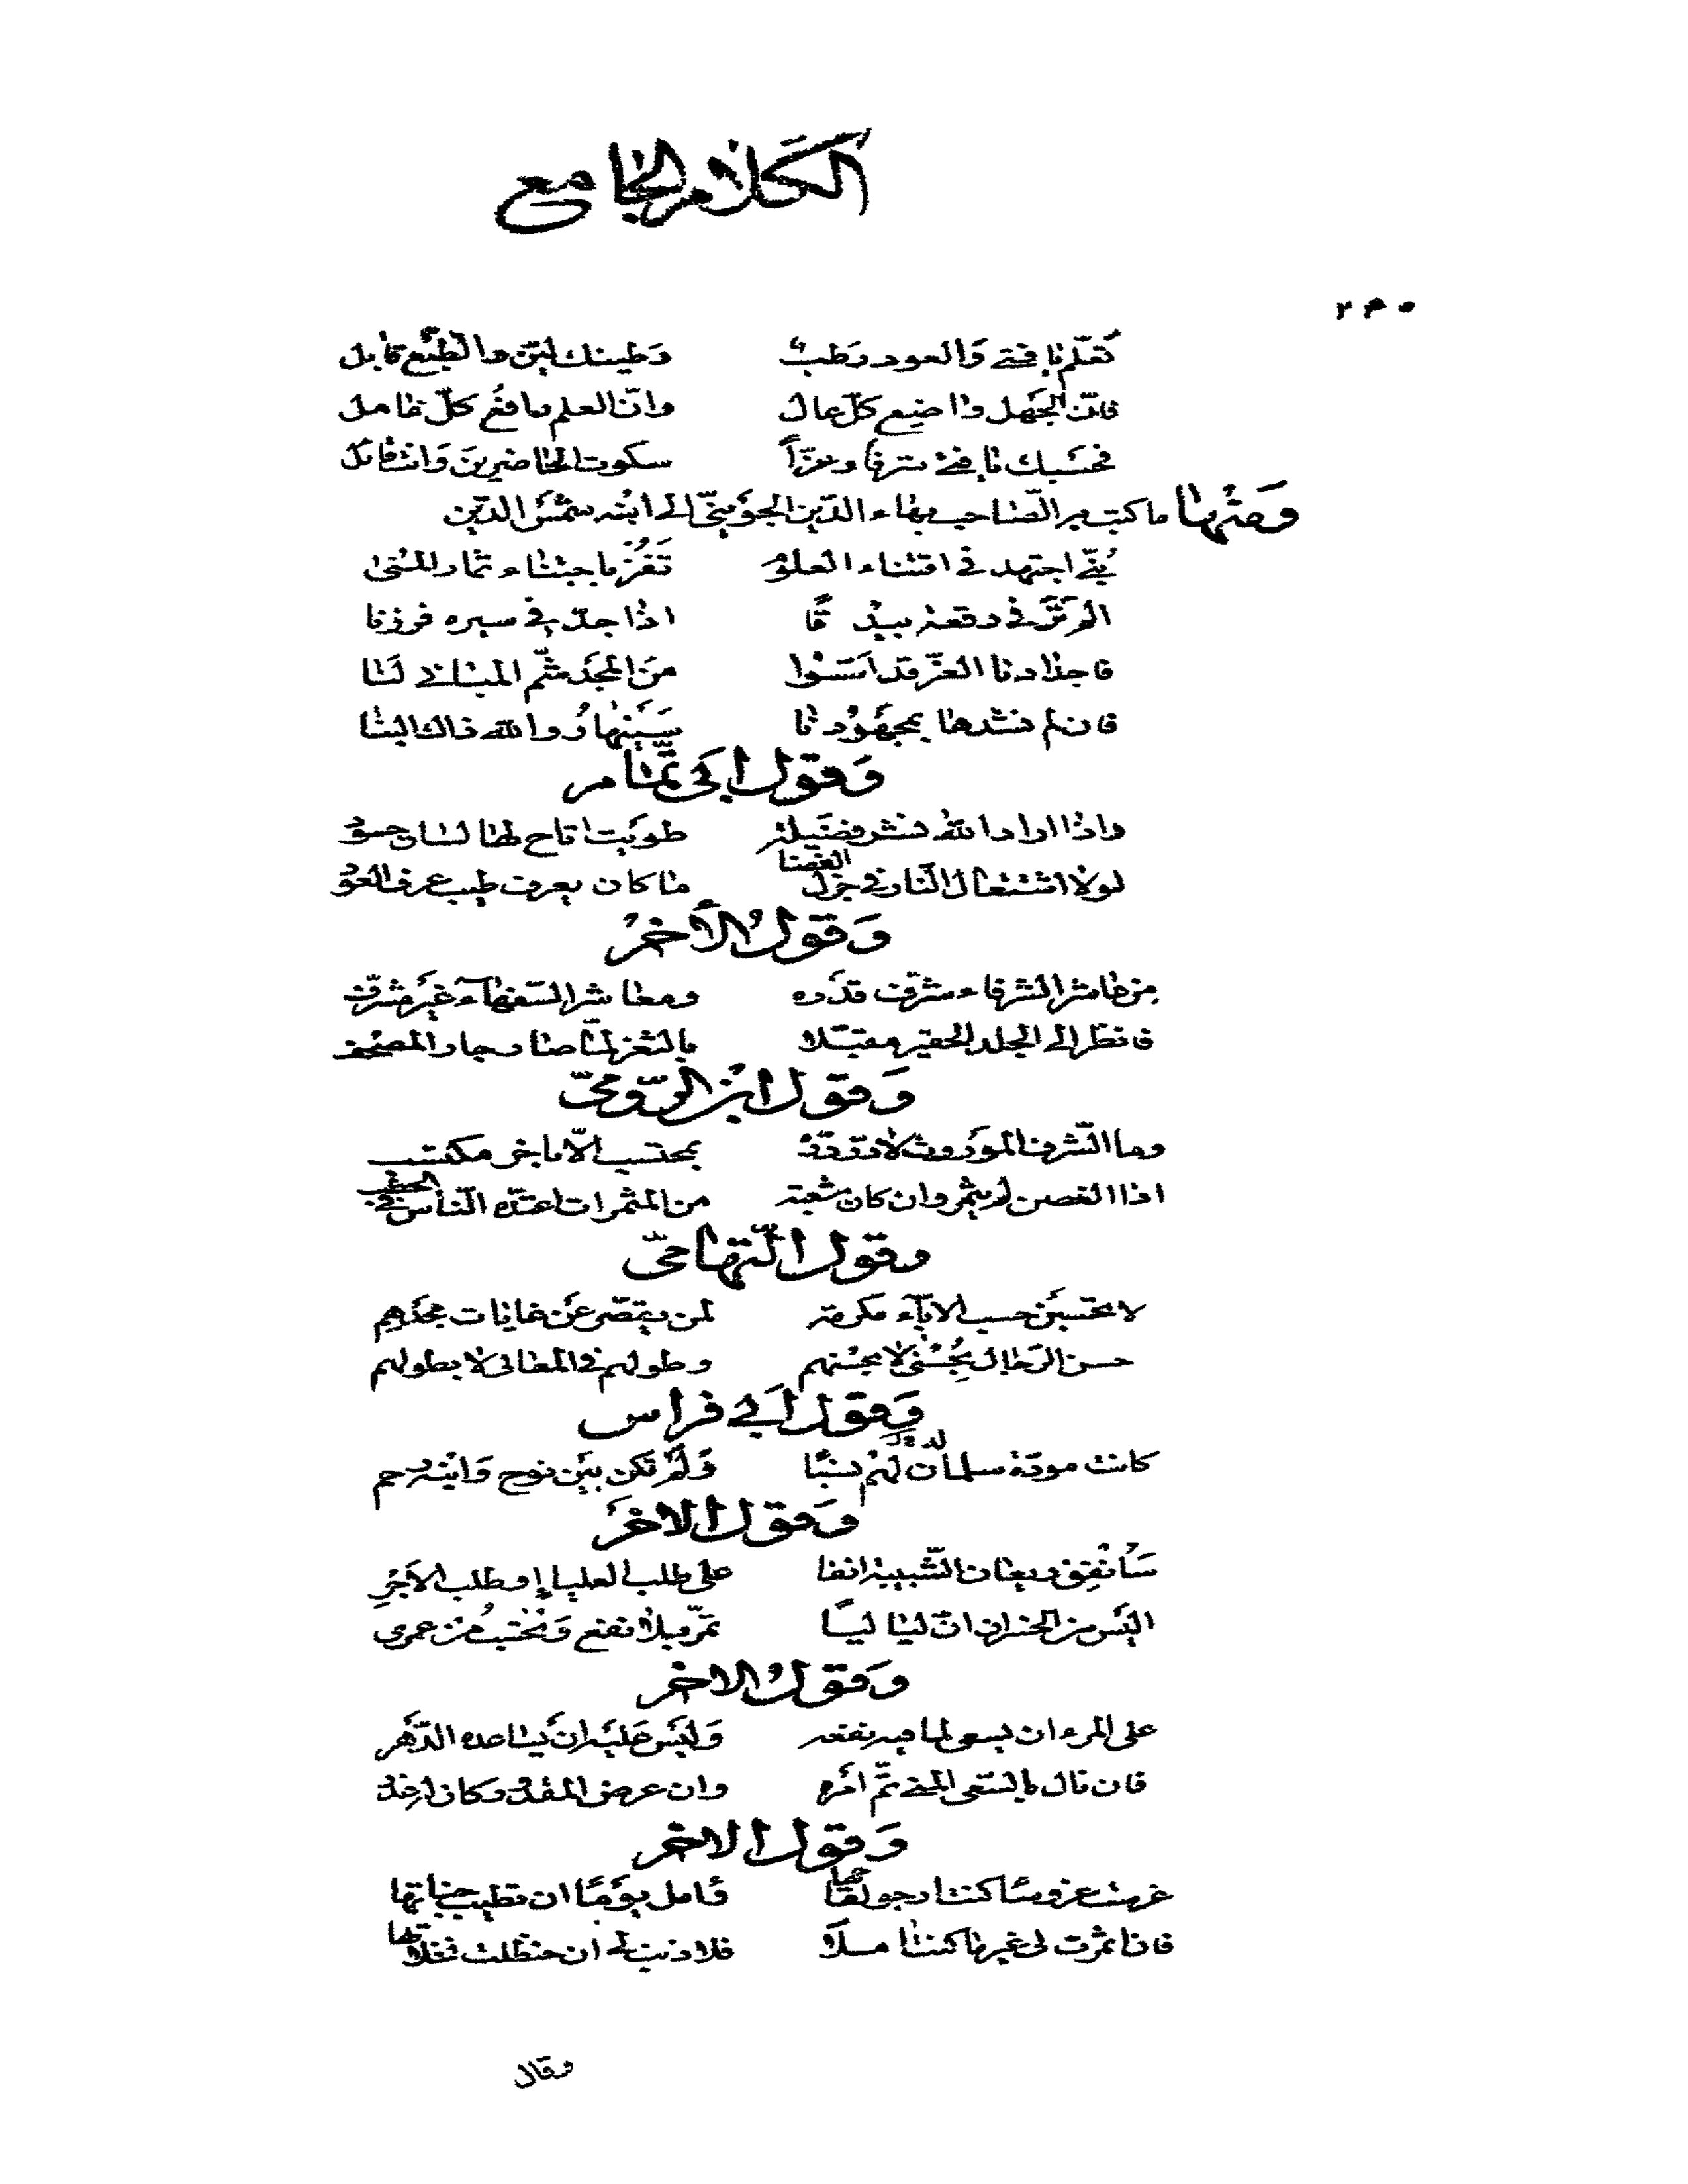 الكلام الجامع
٢٣٠
تعلّم يا فتى وَالعود رَطبٌ وَطينك ليّن والطبْع قابل
فانّ الجَهل واضع كلّ عال وانّ العلم رافعُ كلّ خامل
فحسْبك يا فتى شرفا وعزّاً سكوت الحاضرينَ وَانت قائل
وَمنْها ما كتب بهِ الصّاحب بهاء الدّين الجوَينىّ الى ابنْه شمْس الدّين
بُنىّ اجتهد في اقتناء العلومْ تَفُزْ باجتناء ثمار المُنىٰ
الم تَرَ في رقعة بيدقًا اذا جدّ في سيره فرزنا
فاجدادنا الغرّ قد اَسّسُوا منَ المجَد شمّ المبانى لَنا
فان لم نشدها بمجهُوْدنا سَيَنهارُ والله ذاك البنا
وَقول اَبى تمّام
واذا اراد الله نشر فضَيلة طوَيت اتاح لها لسان حسود
لولا اشتعال النّار في جزل الغضا ما كان يعرف طيب عرف العود
وَقولُ الأَخرْ
من عاشر الشرفاء شرّف قدَره ومعاشر السّفهآء غيَر مشرّف
فانظر الى الجلد الحقير مقبّلا بالثغر لمّا صار جار المصحْف
وَقول ابْن الرّومىّ
وما الشّرف الموَروث لا درّ درّه بمحتسب الّا باخر مكتسب
اذا الغصن لم يثمر وان كان شعبة من المثمرات اعتدّه النّاس في الحطب
وقول التّهامىّ
لا تحسبَنْ حسب الابآء مكرمة لمن يقصّر عَن غايات مجدَهم
حسن الرّجال بِحُسْنى لا بحسْنهم وطولهم في المعالى لا بطولهم
وَقول اَبى فراس
كانت مودّة سلمان لهُم نسَبًا وَلَم تكن بيَن نوح وَابنْه رحم
وَقول الاخَر
سَاُنفِق ريعان الشّبيبة انفا على طلب العليا او طلب الاَجْرِ
اليَس من الخسران انّ لياليًا تمرّ بلا نفع وَتُحْسَبُ منْ عمرى
وَقولُ الاخر
على المرء ان يسعى لما فيه نفعه وَليَس عَليَه انْ يساعده الدّهَر
فان نال بالسّعى المنى تمّ امَره وان عرض المقدور كان له عذر
وَقول الاخر
غرست غروسًا كنت ارجو لقاحها وَامل يوَمًا ان تطيب جناتها
فان اثمرت لى غير ما كنت اَملاً فلا ذنب لى ان حنظلت نخلاتها
وقال